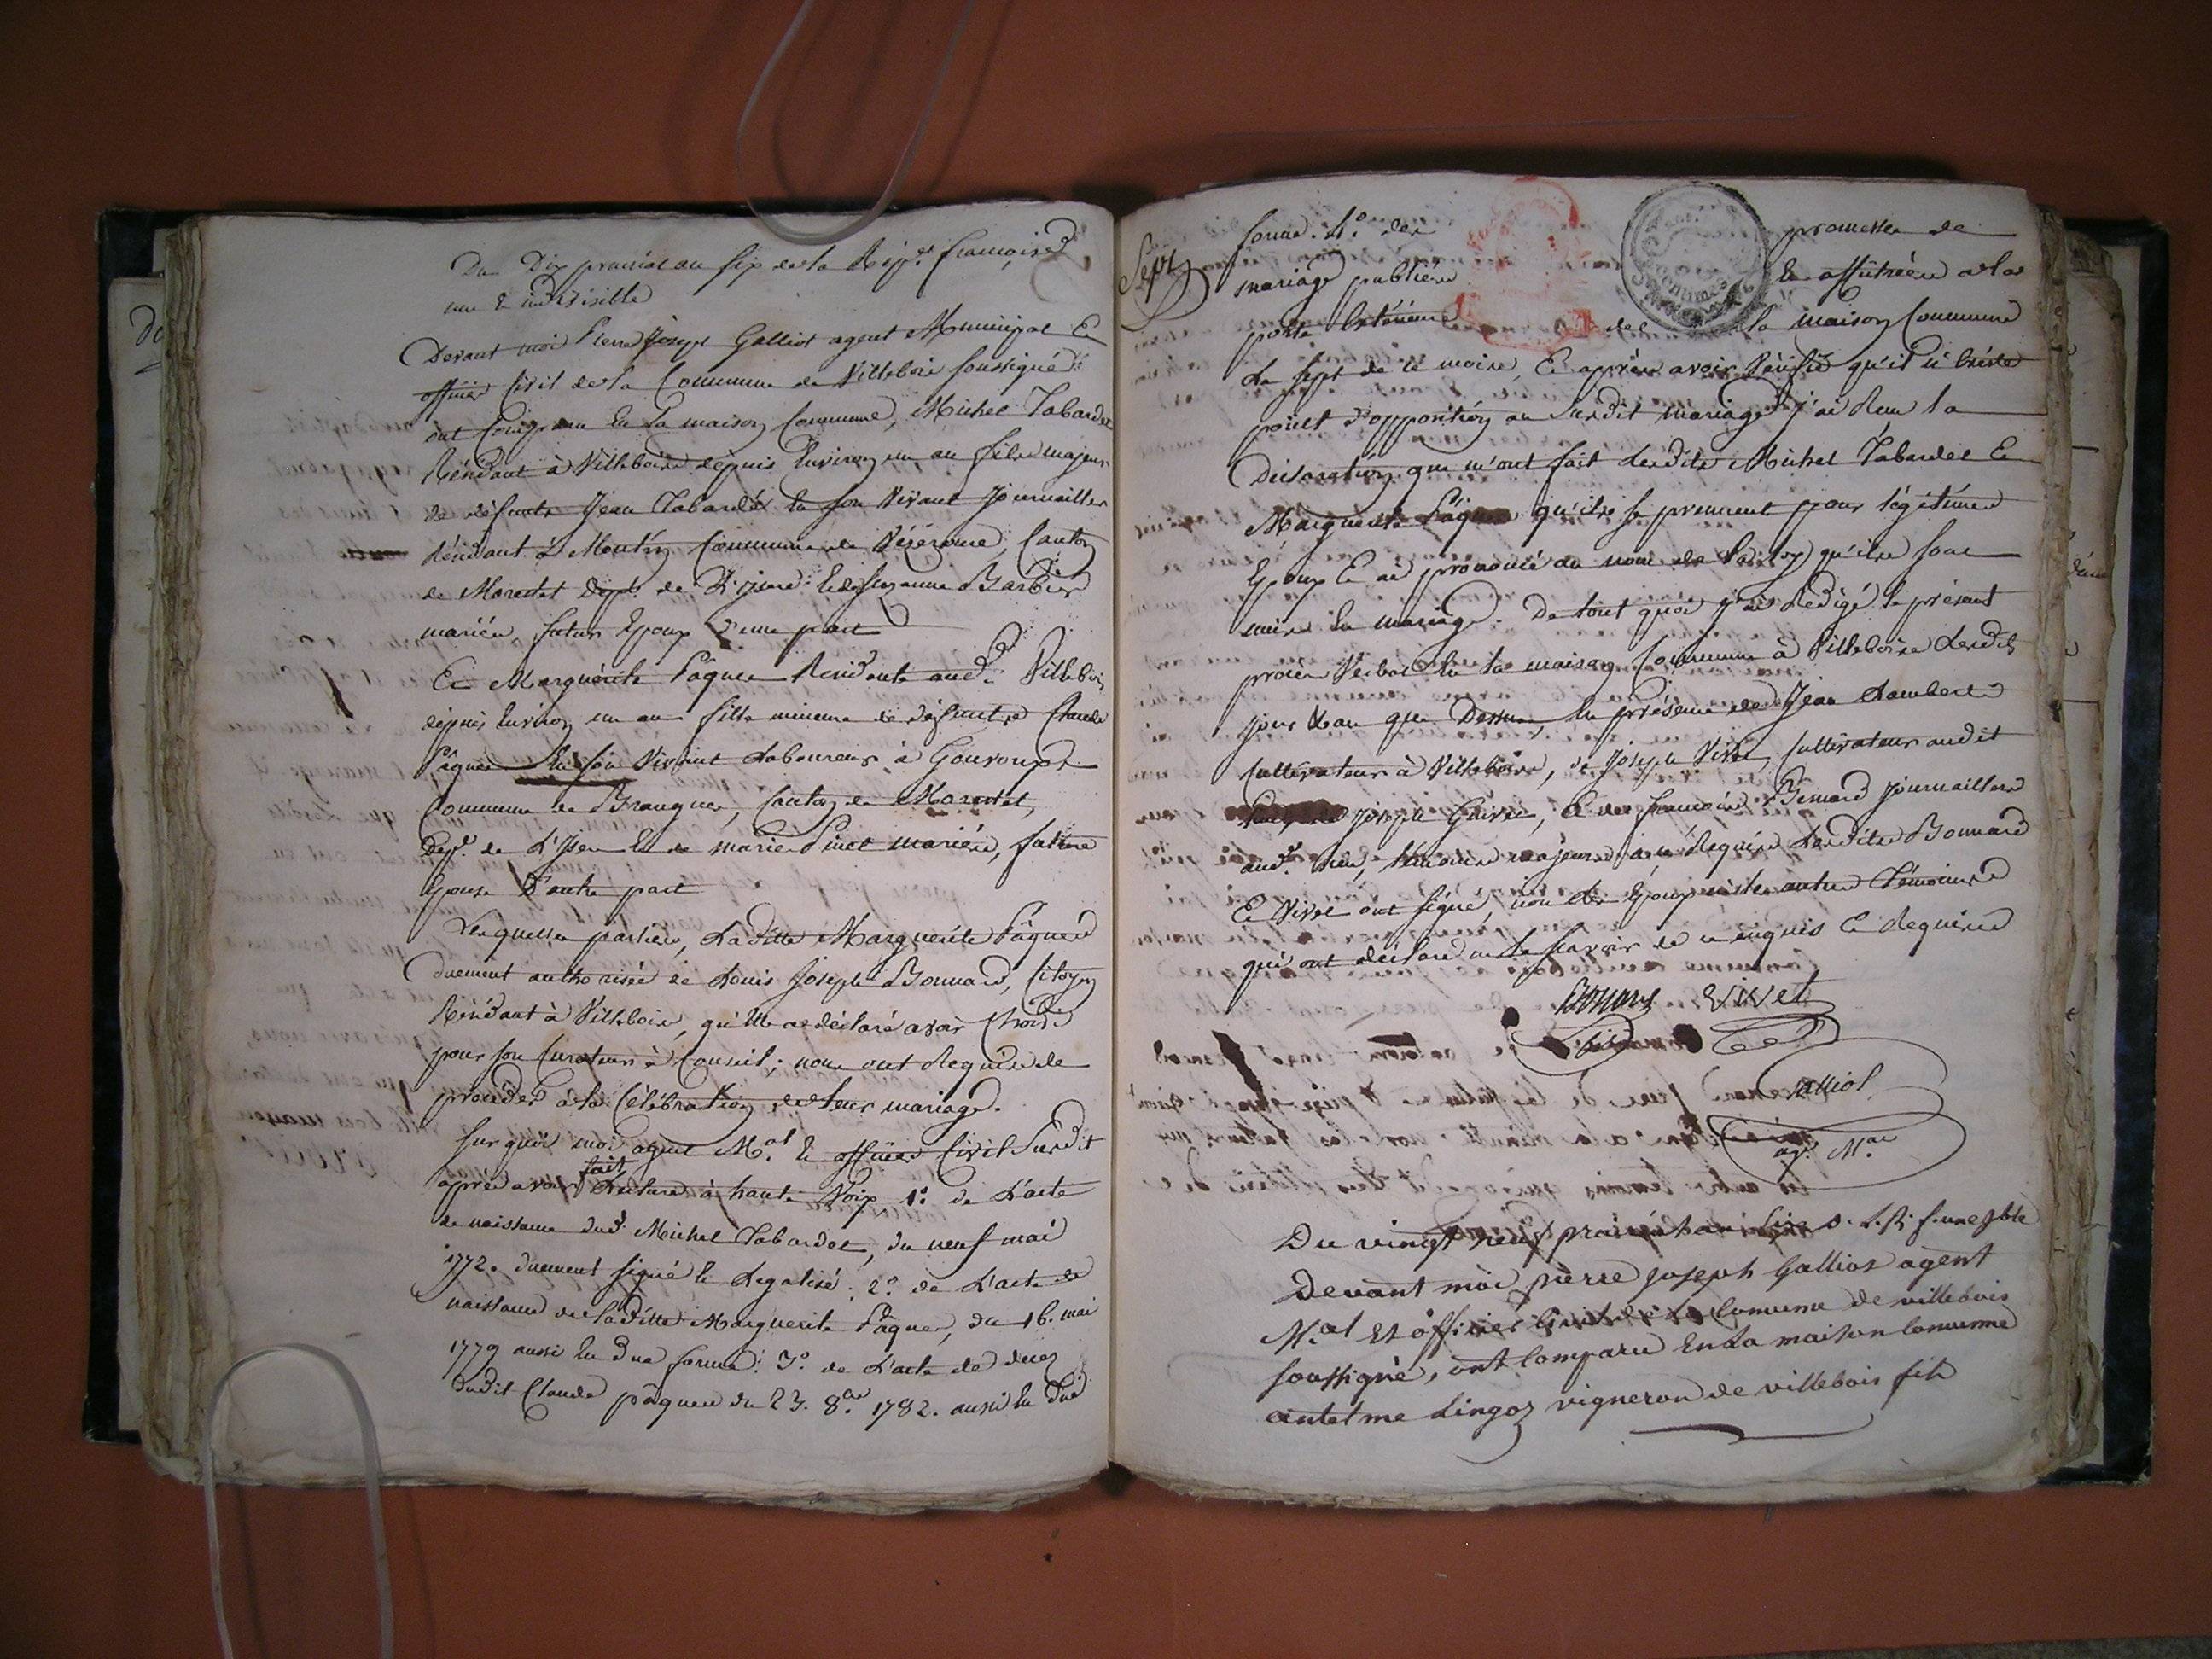 Du Dix prairial an six de la Rép.e française
une & indivisible
Devant moi Pierre Joseph Galliot agent Municipal &
officier Civil de la Commune de Villebois soussigné
ont Comparu En la maison Commune, Michel Tabardet
Résidant à Villebois depuis Environ un an fils majeur
de défunts Jean Tabardet En son Vivant Journaillier
Résidant à Commune de Vézéronce, Canton
de Morestel Dep.t de L'isere & de Suzanne Barbier
mariés, futur Epoux d'une part
Et Marguerite Pâques Résidante aud.t Villebois
depuis Environ un an fille mineure de défunts Claude
Pâques En son Vivant Laboureur à Gouvoux
Commune de Brangues, Canton de Morestel,
Dep.t de L'Isere & de marie Pinet mariés, future
Epouse D'autre part
Lesquelles parties, Laditte Marguerite Pâques
duement authorisée de Louis Joseph Bonnard, Citoyen
Résidant à Villebois, qu'Elle a déclaré avoir Choisi
pour son Curateur à Conseil; nous ont Requis de
procéder à la Célébration de leur mariage.
Sur quoi moi agent M.al & officier Civil Susdit
après avoir fait Lecture à haute Voix 1.° de L'acte
de naissance dud.t Michel Tabardet, du neuf mai
1772. duement signé & Legalisé: 2.° de L'acte de
naissance de laditte Marguerite Pâques, du 16. mai
1779 aussi En due forme: 3.° de L'acte de decez
dudit Claude pâques du 23. 8.bre 1782. aussi En due
Sept
forme. 4.° des promesses de
mariage publiées & affichées à la
porte Extérieure de la maison Commune
Le sept de ce mois, Et après avoir Vérifié qu'il n'Existe
point d'opposition au Susdit mariage j'ai Reçu la
Déclaration que m'ont fait Lesdits Michel Tabardet Et
Marguerite Pâques qu'ils se prennent pour légitimes
Epoux Et ai prononcé au nom de la Loy qu'ils sont
unis En mariage. De tout quoi j'ai Rédigé le présent
procès Verbal En la maison Commune à Villebois Lesdits
jour & an que Dessus En présence de Jean Lambert
Cultivateur à Villebois, de Joseph Vivet, Cultivateur audit
Joseph Grivet, & de françois Bernard journaillers
aud.t lieu, témoins majeurs à ce Requis Lesdits Bonnard
Et Vivet ont signé, non Les Epoux ni les autres témoins
qui ont déclaré ne le savoir de ce enquis Et Requis
Bonnard Vivet
Galliot
ag.t M.al
Du vingt neuf prairial an Six d. l. R. f. une & ible
Devant moi pierre joseph Galliot agent
M.al Et officier Civil de la Comune de villebois
soussigné, ont Comparu En La maison Comune
antelme Lingoz vigneron de villebois fils